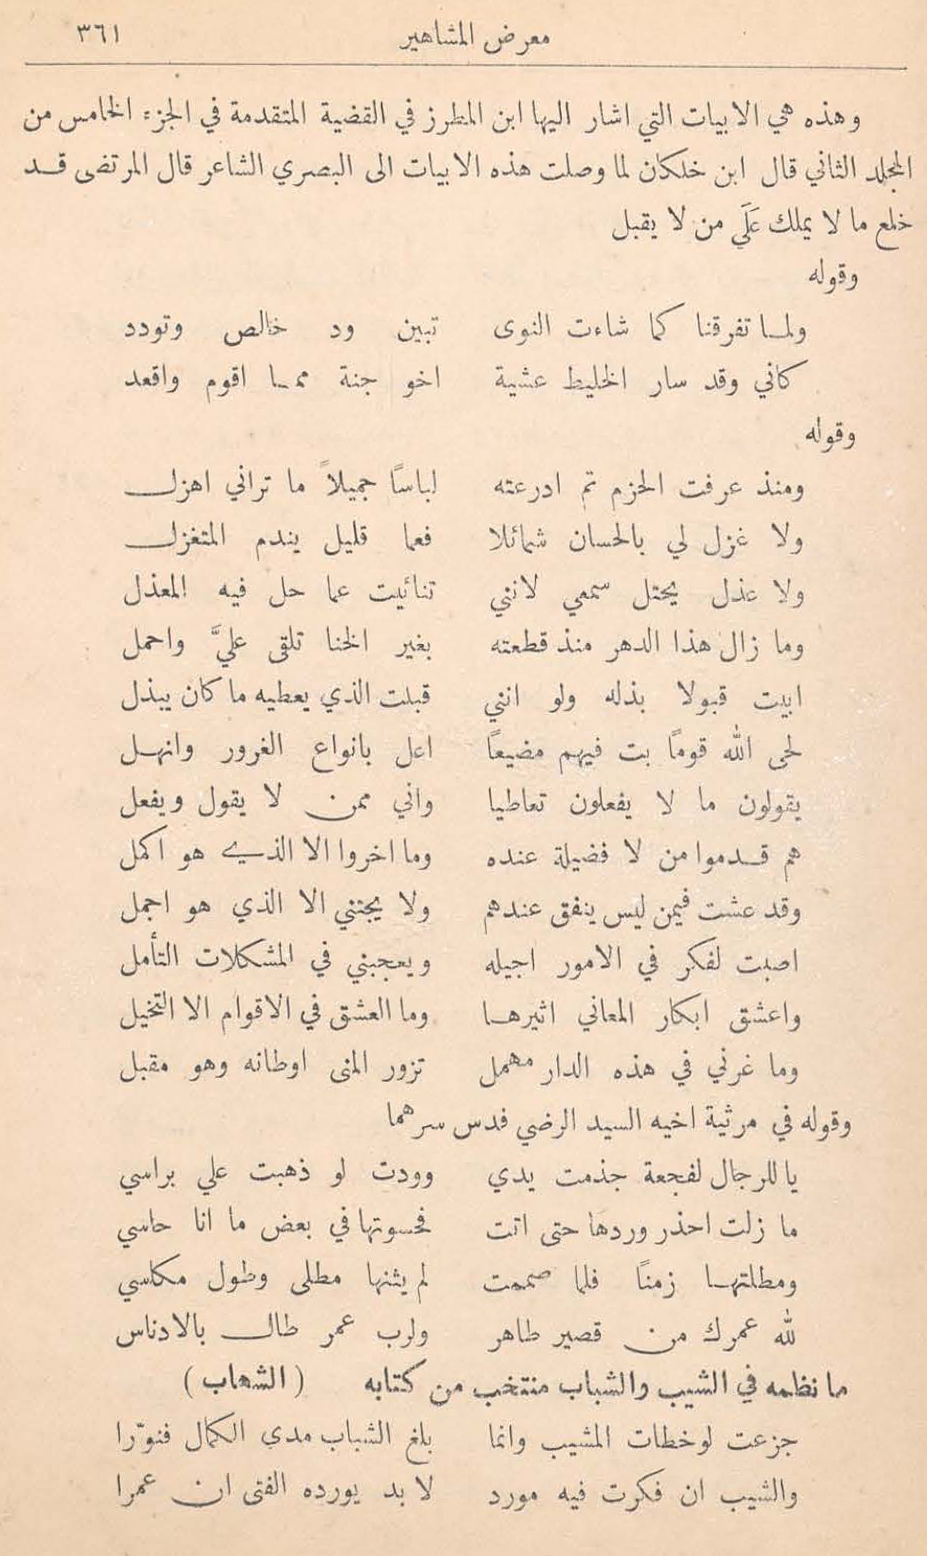 معرض المشاهير ٣٦١
وهذه هي الابيات التي اشار اليها ابن المطرز في القضية المتقدمة في الجزء الخامس من
المجلد الثاني قال ابن خلكان لما وصلت هذه الابيات الى البصري الشاعر قال المرتضى قـد
خلع ما لا يملك عَلَى من لا يقبل
وقوله
ولمـا تفرقنا كما شاءت النوى تبين ود خالص وتودد
كاني وقد سار الخليط عشية اخو جنة ممـا اقوم واقعد
وقوله
ومنذ عرفت الحزم تم ادرعته لباسًا جميلاً ما تراني اهزل
ولا غزل لي بالحسان شمائلا فعما قليل يندم المتغزل
ولا عذل يحتل سمعي لانني تنائيت عما حل فيه المعذل
وما زال هذا الدهر منذ قطعته بغير الخنا تلقى عليَّ واحمل
ابيت قبولا بذله ولو انني قبلت الذي يعطيه ما كان يبذل
لحى الله قومًا بت فيهم مضيعًا اعل بانواع الغرور وانهـل
يقولون ما لا يفعلون تعاطيا واني ممن لا يقول ويفعل
هم قـدموا من لا فضيلة عنده وما اخروا الا الذي هو اكمل
وقد عشت فيمن ليس ينفق عندهم ولا يجتني الا الذي هو اجمل
اصبت لفكر في الامور اجيله ويعجبني في المشكلات التأمل
واعشق ابكار المعاني اثيرهـا وما العشق في الاقوام الا التخيل
وما غرني في هذه الدار مهمل تزور المنى اوطانه وهو مقبل
وقوله في مرثية اخيه السيد الرضي قدس سرهما
يا للرجال لفجعة جذمت يدي ووددت لو ذهبت علي براسي
ما زلت احذر وردها حتى اتت فحسوتها في بعض ما انا حاسي
ومطلتهـا زمنًا فلما صممت لم يثنها مطلى وطول مكاسي
لله عمرك من قصير طاهر ولرب عمر طال بالادناس
ما نظمه في الشيب والشباب منتخب من كتابه (الشهاب)
جزعت لوخطات المشيب وانما بلغ الشباب مدى الكمال فنوّرا
والشيب ان فكرت فيه مورد لا بد يورده الفتى ان عمرا